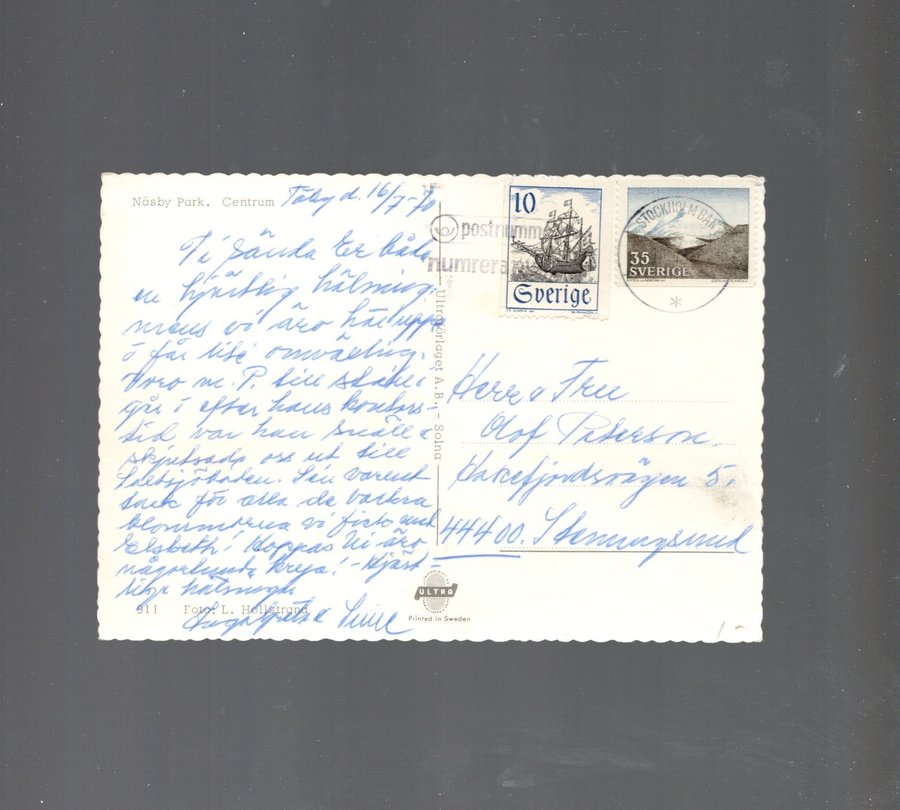 Näsby Park. Centrum
Täby d. 16/7-70
Vi sända Er båda
en hjärtlig hälsning,
mens vi äro här uppe
o får lite omväxling.
Voro m. P. till
går i efter hans kontors-
tid var han snäll o
skjutsade oss ut till
Saltsjöbaden. Sen varmt
tack för alla de vackra
blommorna vi fick med
Elsbeth! Hoppas Ni äro
någorlunda krya! - Hjärt-
liga hälsningar
911 Foto: L. Hollstrand
Ultraförlaget A.B. - Solna
postnumm
numrera
10
Sverige
35
SVERIGE
STOCKHOLM BAN
Herr o Fru
Olof Peterson.
Hakefjordsvägen 5.
44400. Stenungsund
ULTRA
Printed in Sweden
1-